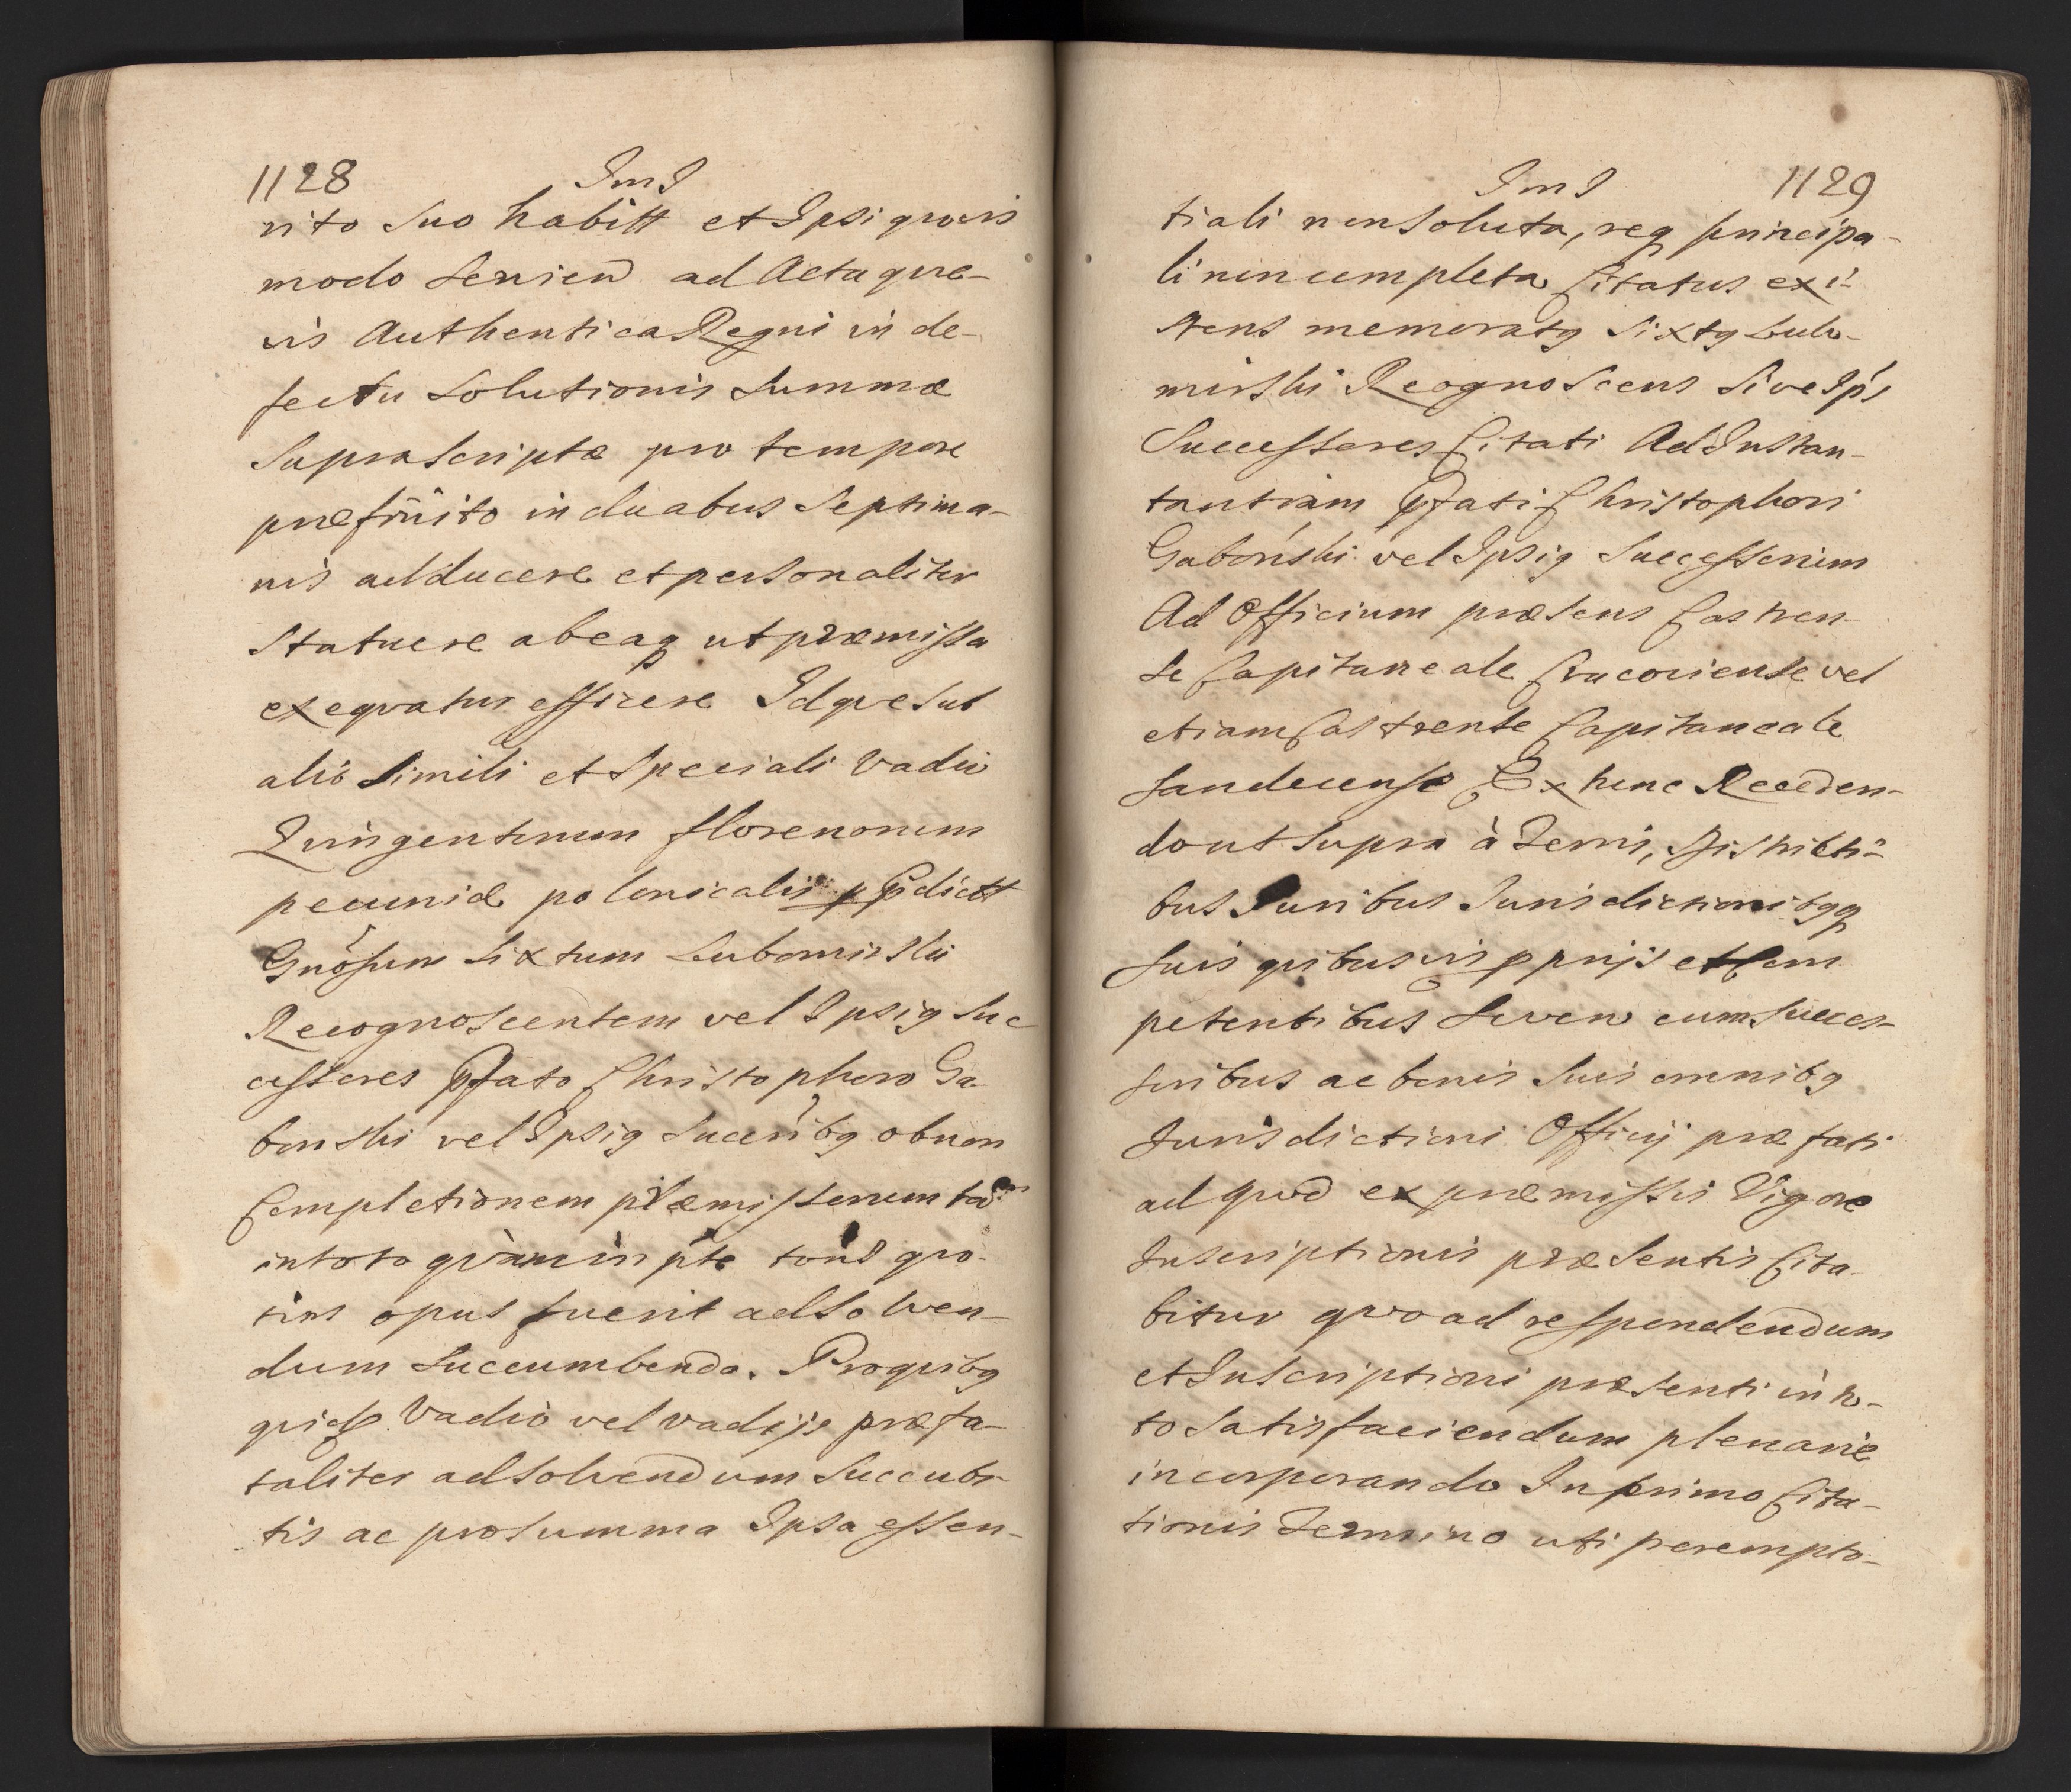 1128
ImI
rito Suo habitt et Ipsi quovis
modo Servien ad Acta quæ-
vis Authentica Regni in de-
fectu Solutionis Summæ
Suprascriptæ pro tempore
præfinito in duabus Septima-
nis adducere et personaliter
Statuere ab eaq ut præmissa
exequatur efficere Idque Sub
alio Simili et Speciali Vadio
Quingentorum florenorum
pecuniæ polonicalis p pdictt
Gnosum Sixtum Lubomirski
Recognoscentem vel Ipsig Suc
cessores pfato Christophoro Ga-
bonski vel Ipsig Succribg ob non
Completionem præmissorum tam
in toto quam in pte toties quo-
ties opus fuerit ad Solven-
dum Succumbendo. Pro quibg
quids Vadio vel vadijs præfa-
taliter ad Solvendum Succubi-
tis ac pro Summa Ipsa essen-
ImI
1129
tiali non Soluta, req principa-
li non completa Citatus exi-
stens memoratg Sixtg Lubo-
mirski Recognoscens Sive Ips
Successores Citati Ad Instan-
tantiam pfati Christophori
Gabonski vel Ipsig Successorum
Ad Officium præsens Castren-
se Capitaneale Cracoviense vel
etiam Castrense Capitaneale
Sandecense Ex tunc Receden-
do ut Supra à Terris, Districti-
bus Juribus Jurisdictionibgq
Suis quibusvis pprijs et Com
petentibus Seven cum Succes-
soribus ac bonis Suis omnibg
Jurisdictioni Officij præfati
ad quod ex præmissis Vigore
Inscriptionis præsentis Cita-
bitur quo ad respondendum
et Inscriptioni præsenti in to-
to Satisfaciendum plenarie
incorporando In primo Cita-
tionis Termino uti perempto-